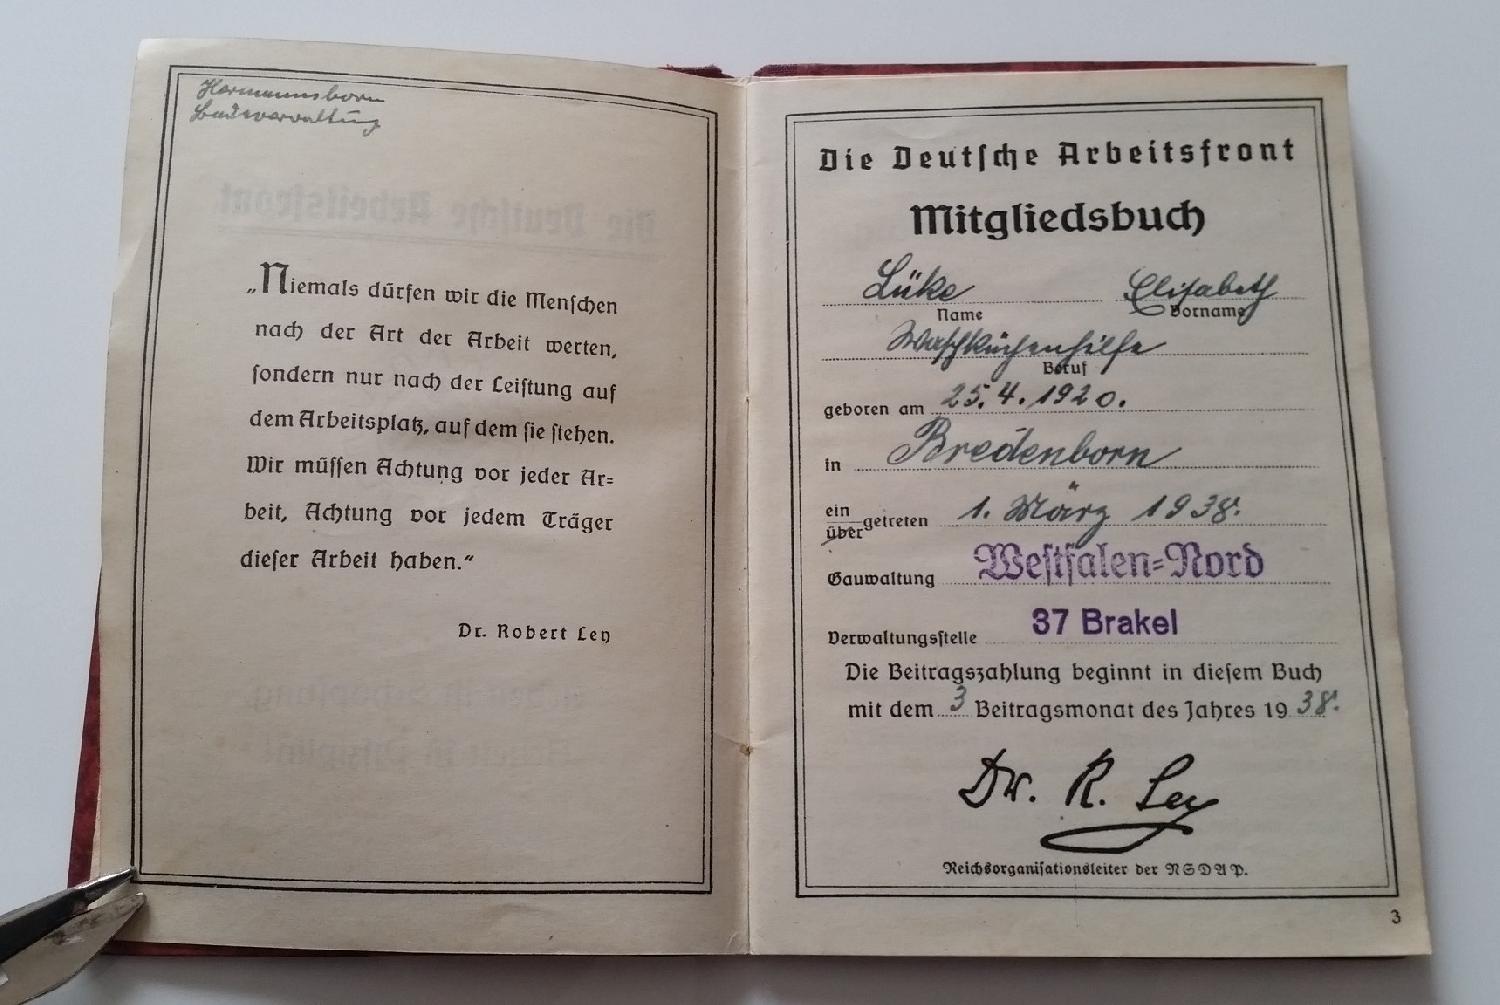 Hermannsborn
Badeverwaltung
„Niemals dürfen wir die Menschen
nach der Art der Arbeit werten,
sondern nur nach der Leistung auf
dem Arbeitsplatz, auf dem sie stehen.
Wir müssen Achtung vor jeder Ar=
beit, Achtung vor jedem Träger
dieser Arbeit haben.“
Dr. Robert Ley
Die Deutsche Arbeitsfront
Mitgliedsbuch
Lüke Elisabeth
Name Vorname
Waschküchenhilfe
Beruf
geboren am 25.4.1920.
in Bredenborn
ein
über getreten 1. März 1938.
Gauwaltung Westfalen=Nord
Verwaltungsstelle 37 Brakel
Die Beitragszahlung beginnt in diesem Buch
mit dem 3 Beitragsmonat des Jahres 1938.
Dr. R. Ley
Reichsorganisationsleiter der NSDAP.
3